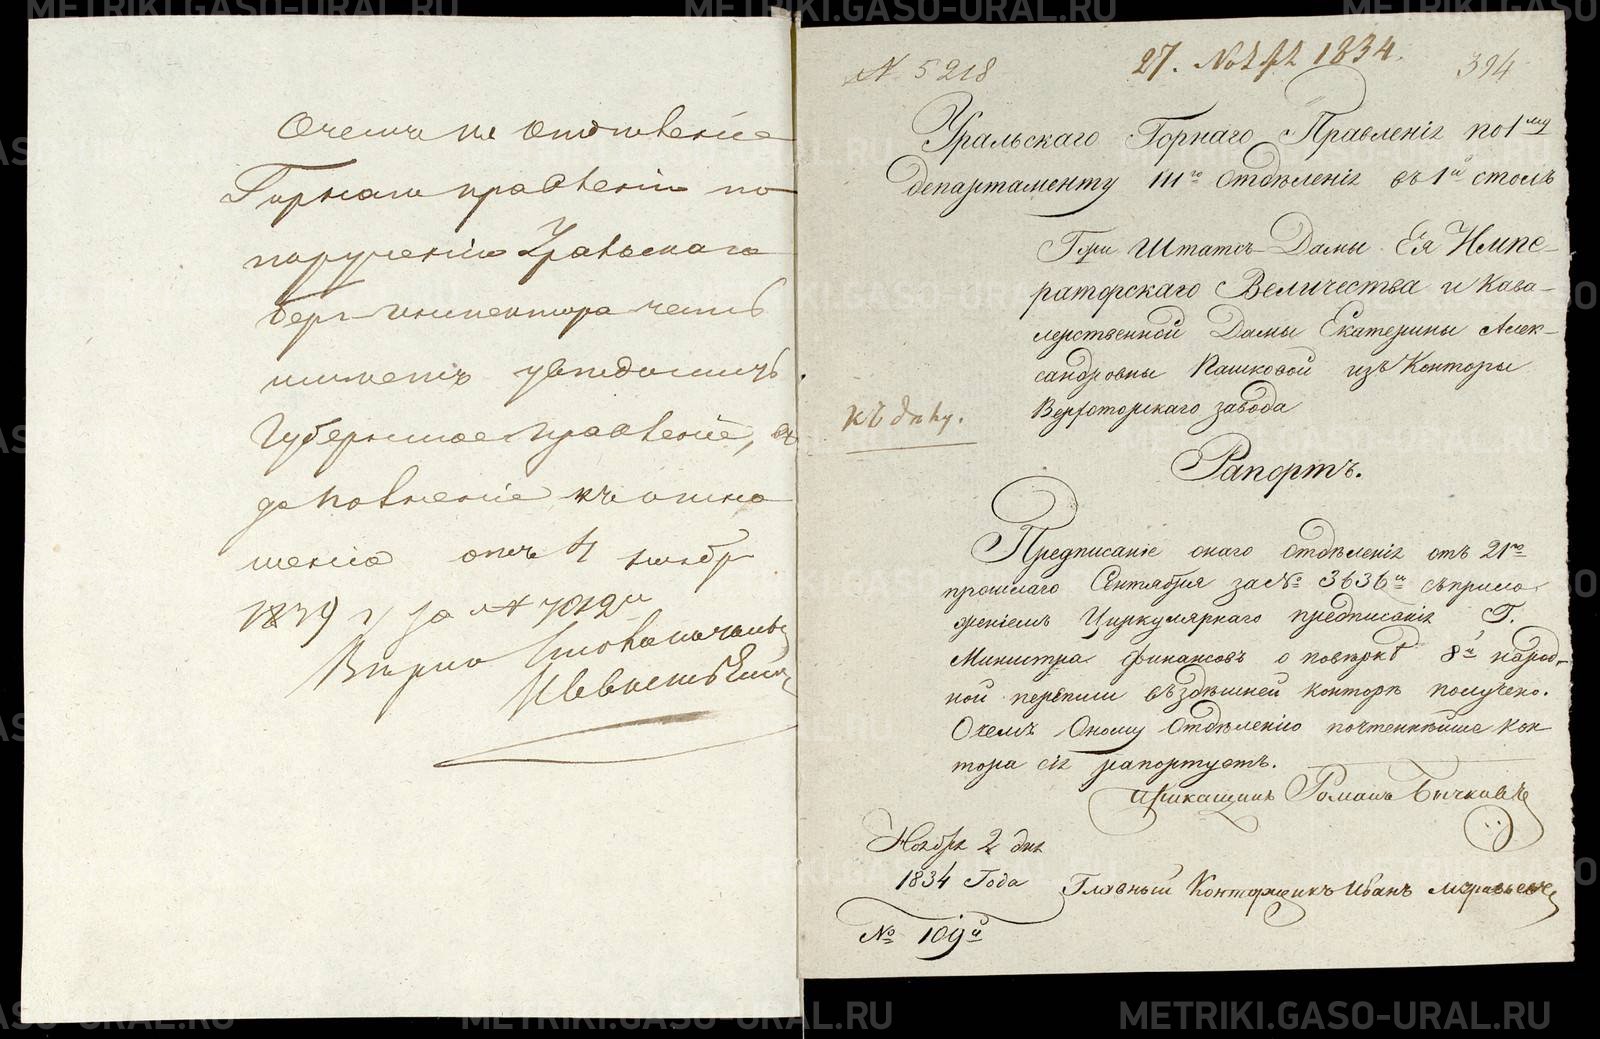 О чемъ по отдѣленіе
Горнаго правленія по
порученію Уральскаго
Бергъ-инспектора честь
имѣетъ увѣдомить
Губернское правленіе, въ
дополненіе къ отно
шенію отъ 4 ноябр
1839 г за №
Вѣрно Столоначальн
N 5218
27. Ноября 1834.
394
Уральскаго Горнаго Правленія по 1му
департаменту III го Отдѣленія въ 1й столъ
Г-жи Штатсъ-Дамы Ея Импе-
раторскаго Величества и Кава-
лерственной Дамы Екатерины Алек-
сандровны Пашковой изъ Конторы
Верхоторскаго завода
къ дѣлу.
Рапортъ.
Предписаніе онаго Отдѣленія отъ 21го
прошлаго Сентября за № 3636м съ прило
женіемъ Циркулярнаго предписанія Г.
Министра финансовъ о повѣркѣ 8й народ-
ной переписи въ здѣшней конторѣ получено.
О чемъ Оному Отдѣленію почтеннѣйше кон
тора сія рапортуетъ.
Прикащикъ Романъ Бычковъ
Ноября 2 дня
1834 Года
Главный Конторщикъ Иванъ
№ 109й
METRIKI.GASO-URAL.RU